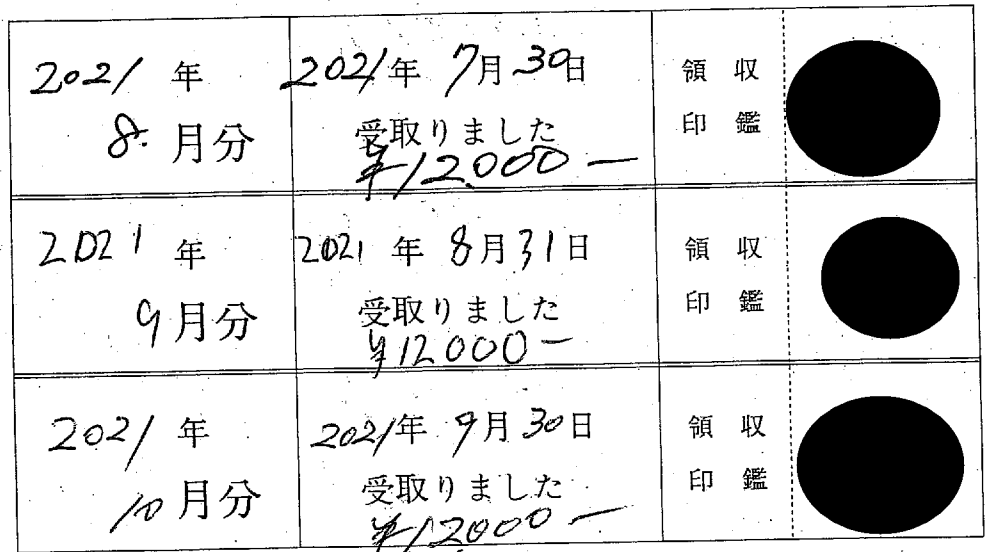 2021年
8月分
2021年 7月30日
受取りました
¥12000ー
領収
印鑑
2021年
9月分
2021年 8月31日
受取りました
¥12000ー
領収
印鑑
2021年
10月分
2021年 9月30日
受取りました
¥12000ー
領収
印鑑